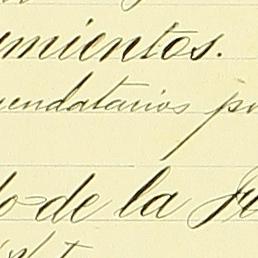 mientos.
endatarios p
do=de la Ju